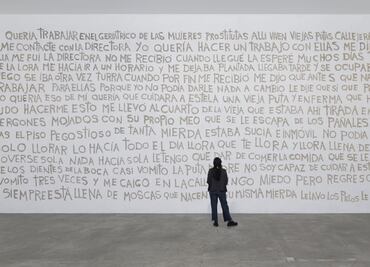 QUERÍA TRABAJAR EN EL GERIÁTRICO DE LAS MUJERES PROSTITUTAS ALLI VIVEN VIEJAS PUTAS CALLEJER
ME CONTACTE CON LA DIRECTORA YO QUERÍA HACER UN TRABAJO CON ELLAS ME DIJ
IA ME FUI LA DIRECTORA NO ME RECIBIO CUANDO LLEGUE LA ESPERE MUCHOS DIAS
E LLORA ME HACIA IR A UN HORARIO Y ME DEJABA PLANTADA LLEGABA TARDE Y SE OCUPAB
EGO SE IBA OTRA VEZ CUANDO POR FIN ME RECIBIO ME DIJO QUE ANTES QUE NA
RABAJAR PARA ELLAS PORQUE YO NO PODIA DARLE NADA A CAMBIO LE DIJE QUE SI QUE P
O QUERIA ESO DE MI QUERIA QUE CUIDARA A ESTELA UNA VIEJA PUTA Y ENFERMA QUE H
UDO HACERME ESTO ME LLEVO AL CUARTO DE LA VIEJA QUE ESTABA AHI TIRADA E
ERGONES MOJADOS CON SU PROPIO MEO QUE SE LE ESCAPA DE LOS PAÑALES
AS EL PISO PEGOSTIOSO DE TANTA MIERDA ESTABA SUCIA E INMOVIL NO PODIA
SOLO LLORAR LO HACIA TODO EL DIA LLORA QUE TE LLORA Y LLORA LLENA DE
OVERSE SOLA NADA HACIA SOLA LE TENGO QUE DAR DE COMER LA COMIDA QUE SE LE
E LOS DIENTES DE LA BOCA CASI VOMITO LA PUTA MADRE NO SOY CAPAZ DE CUIDAR A ES
VOMITO TRES VECES Y ME CAIGO EN LA CALLE TENGO MIEDO PERO REGRES
SIEMPRE ESTA LLENA DE MOSCAS QUE NACEN UN MISMA MIERDA LE LAVO LOS PELOS LE